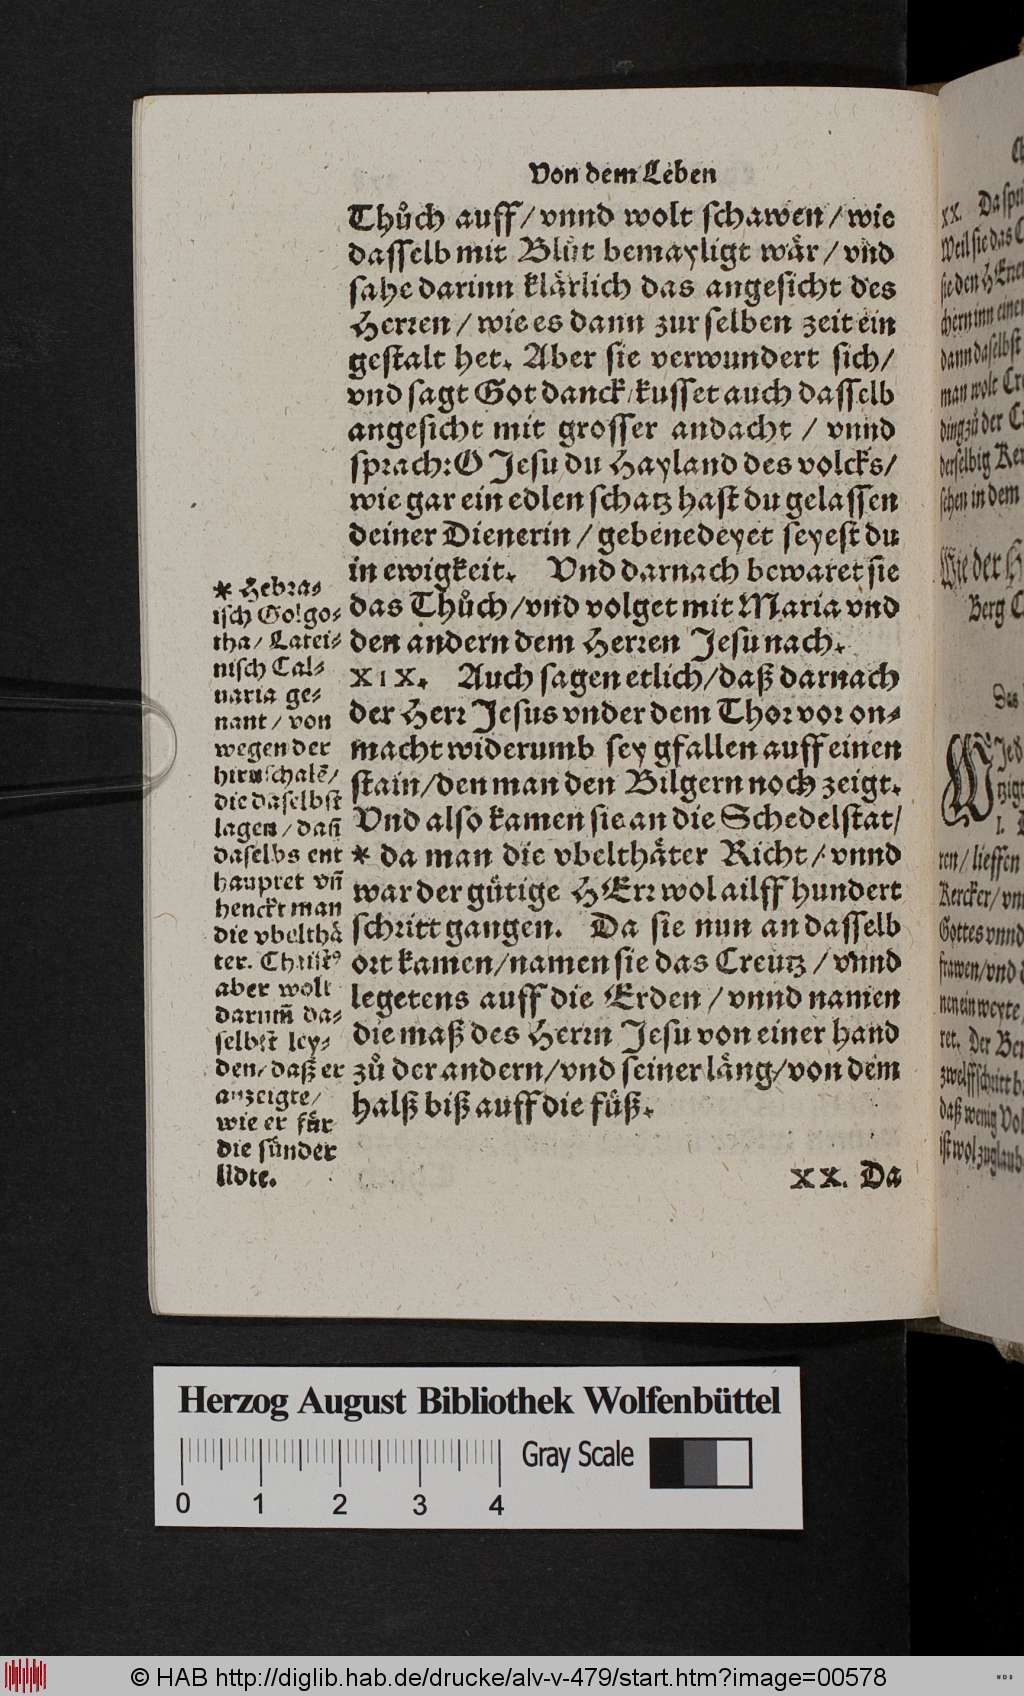 Von dem Leben
Thůch auff / vnnd wolt schawen / wie
dasselb mit Blůt bemayligt wår / vnd
sahe darinn klårlich das angesicht des
Herren / wie es dann zur selben zeit ein
gestalt het. Aber sie verwundert sich /
vnd sagt Got danck / kusset auch dasselb
angesicht mit grosser andacht / vnnd
sprach: O Jesu du Hayland des volcks /
wie gar ein edlen schatz hast du gelassen
deiner Dienerin / gebenedeyet seyest du
in ewigkeit. Vnd darnach bewaret sie
das Thůch / vnd volget mit Maria vnd
den andern dem Herren Jesu nach.
XIX. Auch sagen etlich / daß darnach
der Herr Jesus vnder dem Thor vor on-
macht widerumb sey gfallen auff einen
stain / den man den Bilgern noch zeigt.
Vnd also kamen sie an die Schedelstat /
* da man die vbelthåter Richt / vnnd
war der gütige HErr wol ailff hundert
schritt gangen. Da sie nun an dasselb
ort kamen / namen sie das Creutz / vnnd
legetens auff die Erden / vnnd namen
die maß des Herrn Jesu von einer hand
zů der andern / vnd seiner lång / von dem
halß biß auff die füß.
* Hebra-
isch Golgo-
tha / Latei-
nisch Cal-
uaria ge-
nant / von
wegen der
hirnschalẽ /
die daselbst
lagen / dañ
daselbs ent
hauptet vñ
henckt man
die vbelthå
ter. Christꝰ
aber wolt
darum̃ da-
selbst ley-
den / daß er
anzeigte /
wie er für
die sünder
lidte.
XX. Da
XX. Da
Weil sie das
sie den
chern inn einer
dann daselbst
man wolt
ding zů der
derselbig
sehen in dem
Wie der
Berg
Das
I.
ren / lieffen
Kercker /
Gottes vnnd
frawen / vnd
nen ein weyte
ret. Der
zwelff schritt
daß wenig
ist wol zuglaub
Herzog August Bibliothek Wolfenbüttel
Gray Scale
0 1 2 3 4
© HAB http://diglib.hab.de/drucke/alv-v-479/start.htm?image=00578